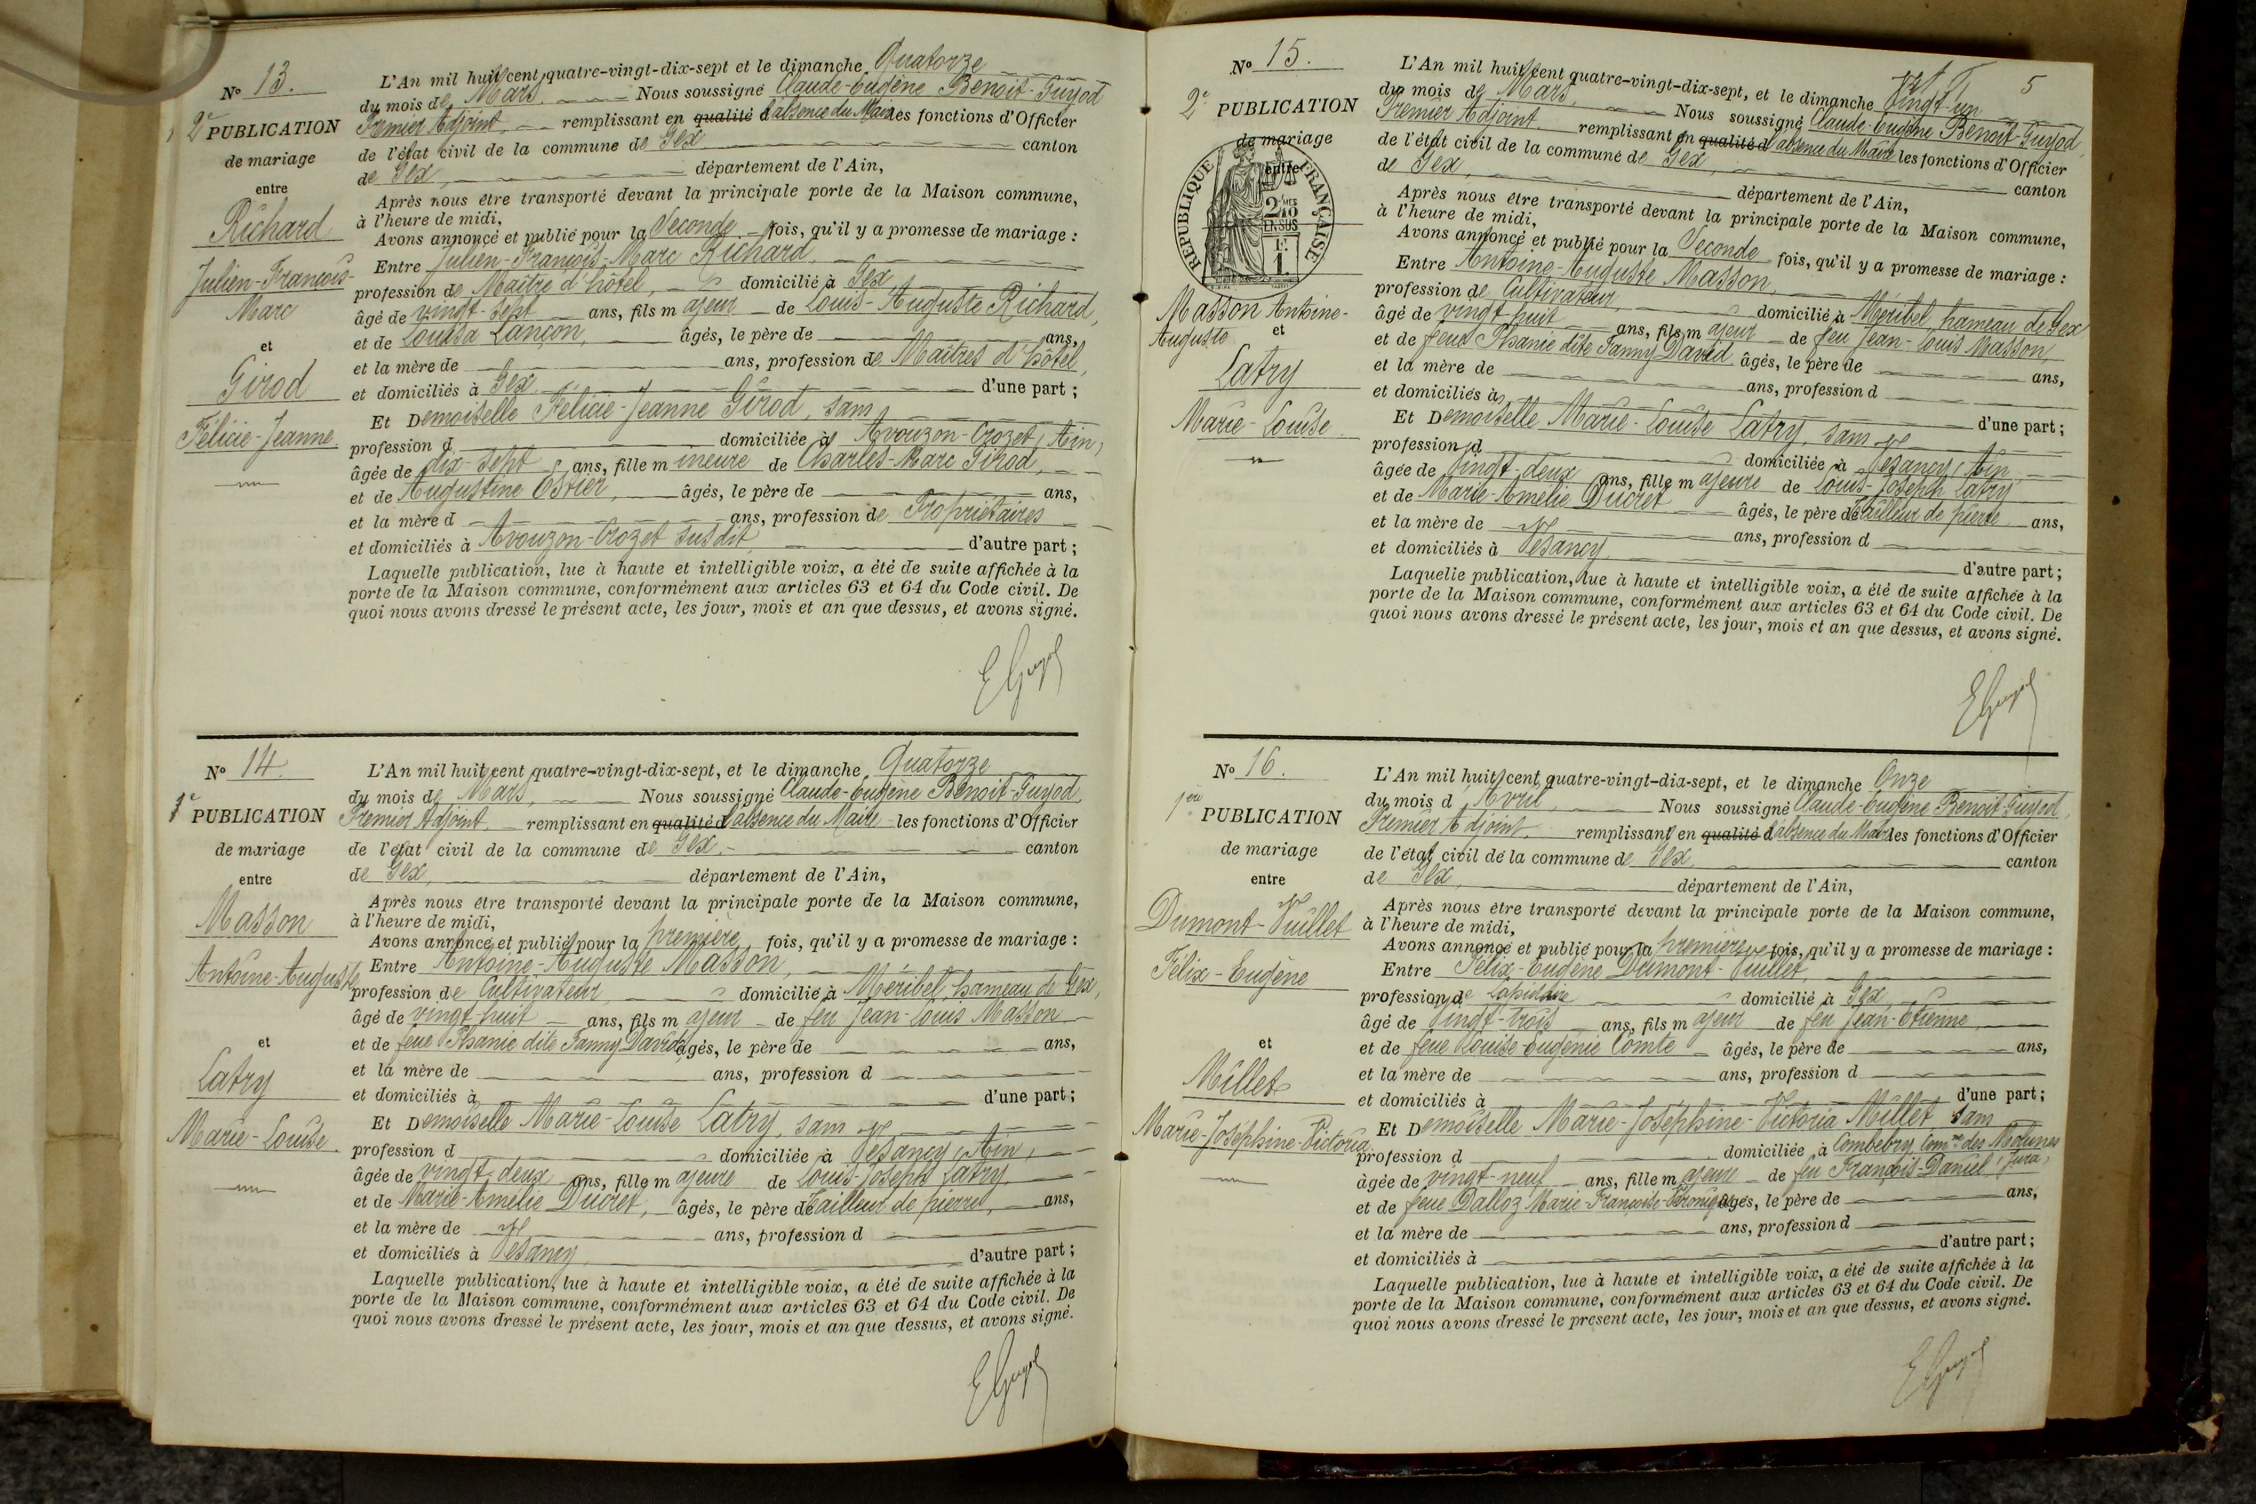 Nº 13.
2e PUBLICATION
de mariage
entre
Richard
Julien-François-
Marc
et
Girod
Félicie-Jeanne
L'An mil huit cent quatre-vingt-dix-sept et le dimanche Quatorze
du mois de Mars, Nous soussigné Claude-Eugène Benoit-Guyod
Premier Adjoint, remplissant en qualité d l'absence du Maire les fonctions d'Officier
de l'état civil de la commune de Gex canton
de Gex, département de l'Ain,
Après nous être transporté devant la principale porte de la Maison commune,
à l'heure de midi,
Avons annoncé et publié pour la Seconde fois, qu'il y a promesse de mariage :
Entre Julien-François-Marc Richard,
profession de Maître d'hôtel, domicilié à Gex,
âgé de vingt-sept ans, fils majeur de Louis-Auguste Richard,
et de Louisa Lançon, âgés, le père de ans,
et la mère de ans, profession de Maîtres d'hôtel,
et domiciliés à Gex d'une part ;
Et Demoiselle Félicie-Jeanne Girod, sans
profession d domiciliée à Avouzon-Crozet, Ain,
âgée de dix-sept ans, fille mineure de Charles-Marc Girod,
et de Augustine Ostier, âgés, le père de ans,
et la mère d ans, profession de Propriétaires
et domiciliés à Avouzon-Crozet susdit, d'autre part ;
Laquelle publication, lue à haute et intelligible voix, a été de suite affichée à la
porte de la Maison commune, conformément aux articles 63 et 64 du Code civil. De
quoi nous avons dressé le présent acte, les jour, mois et an que dessus, et avons signé.
EGuyod
Nº 14
1e PUBLICATION
de mariage
entre
Masson
Antoine-Auguste
et
Latry
Marie-Louise
L'An mil huit cent quatre-vingt-dix-sept, et le dimanche Quatorze
du mois de Mars, Nous soussigné Claude-Eugène Benoit-Guyod,
Premier Adjoint, remplissant en qualité d l'absence du Maire les fonctions d'Officier
de l'état civil de la commune de Gex. canton
de Gex, département de l'Ain,
Après nous être transporté devant la principale porte de la Maison commune,
à l'heure de midi,
Avons annoncé et publié pour la première fois, qu'il y a promesse de mariage :
Entre Antoine-Auguste Masson,
profession de Cultivateur, domicilié à Méribel, hameau de Gex,
âgé de vingt huit ans, fils majeur de feu Jean-Louis Masson
et de feue Phanie dite Fanny David âgés, le père de ans,
et la mère de ans, profession d
et domiciliés à d'une part ;
Et Demoiselle Marie-Louise Latry, sans
profession d domiciliée à Vesancy, Ain,
âgée de vingt deux ans, fille majeure de Louis-Joseph Latry,
et de Marie-Amélie Ducret, âgés, le père de Tailleur de pierre, ans,
et la mère de ans, profession d
et domiciliés à Vesancy, d'autre part ;
Laquelle publication, lue à haute et intelligible voix, a été de suite affichée à la
porte de la Maison commune, conformément aux articles 63 et 64 du Code civil. De
quoi nous avons dressé le présent acte, les jour, mois et an que dessus, et avons signé.
EGuyod
5
Nº 15.
2e PUBLICATION
de mariage
entre
RÉPUBLIQUE FRANÇAISE
2/10
EN SUS
Masson Antoine-
Auguste
et
Latry
Marie-Louise
L'An mil huit cent quatre-vingt-dix-sept, et le dimanche Vingt-un
du mois de Mars, Nous soussigné Claude-Eugène Benoit-Guyod,
Premier Adjoint. remplissant en qualité d l'absence du Maire les fonctions d'Officier
de l'état civil de la commune de Gex, canton
de Gex, département de l'Ain,
Après nous être transporté devant la principale porte de la Maison commune,
à l'heure de midi,
Avons annoncé et publié pour la Seconde fois, qu'il y a promesse de mariage :
Entre Antoine-Auguste Masson,
profession de Cultivateur, domicilié à Méribel, hameau de Gex
âgé de vingt huit ans, fils majeur de feu Jean-Louis Masson,
et de feue Phanie dite Fanny David âgés, le père de ans,
et la mère de ans, profession d
et domiciliés à d'une part ;
Et Demoiselle Marie-Louise Latry, sans
profession d domiciliée à Vesancy, Ain
âgée de vingt-deux ans, fille majeure de Louis-Joseph Latry
et de Marie-Amélie Ducret âgés, le père de Tailleur de pierre ans,
et la mère de ans, profession d
et domiciliés à Vesancy d'autre part ;
Laquelle publication, lue à haute et intelligible voix, a été de suite affichée à la
porte de la Maison commune, conformément aux articles 63 et 64 du Code civil. De
quoi nous avons dressé le présent acte, les jour, mois et an que dessus, et avons signé.
EGuyod
Nº 16.
1ère PUBLICATION
de mariage
entre
Dumont-Vuillet
Félix-Eugène
et
Millet
Marie-Joséphine-Victoria
L'An mil huit cent quatre-vingt-dix-sept, et le dimanche Onze
du mois d'Avril, Nous soussigné Claude-Eugène Benoit-Guyod,
Premier Adjoint, remplissant en qualité d l'absence du Maire les fonctions d'Officier
de l'état civil de la commune de Gex, canton
de Gex, département de l'Ain,
Après nous être transporté devant la principale porte de la Maison commune,
à l'heure de midi,
Avons annoncé et publié pour la première fois, qu'il y a promesse de mariage :
Entre Félix-Eugène Dumont-Vuillet
profession de Lapidaire domicilié à Gex,
âgé de Vingt-trois ans, fils majeur de feu Jean-Etienne
et de feue Louise-Eugénie Comte âgés, le père de ans,
et la mère de ans, profession d
et domiciliés à d'une part ;
Et Demoiselle Marie-Joséphine-Victoria Millet sans
profession d domiciliée à Combebry Comne des Molunes
âgée de vingt-neuf ans, fille majeure de feu François-Daniel (Jura)
et de feue Dalloz Marie-Françoise-Véronique âgés, le père de ans,
et la mère de ans, profession d
et domiciliés à d'autre part ;
Laquelle publication, lue à haute et intelligible voix, a été de suite affichée à la
porte de la Maison commune, conformément aux articles 63 et 64 du Code civil. De
quoi nous avons dressé le présent acte, les jour, mois et an que dessus, et avons signé.
EGuyod